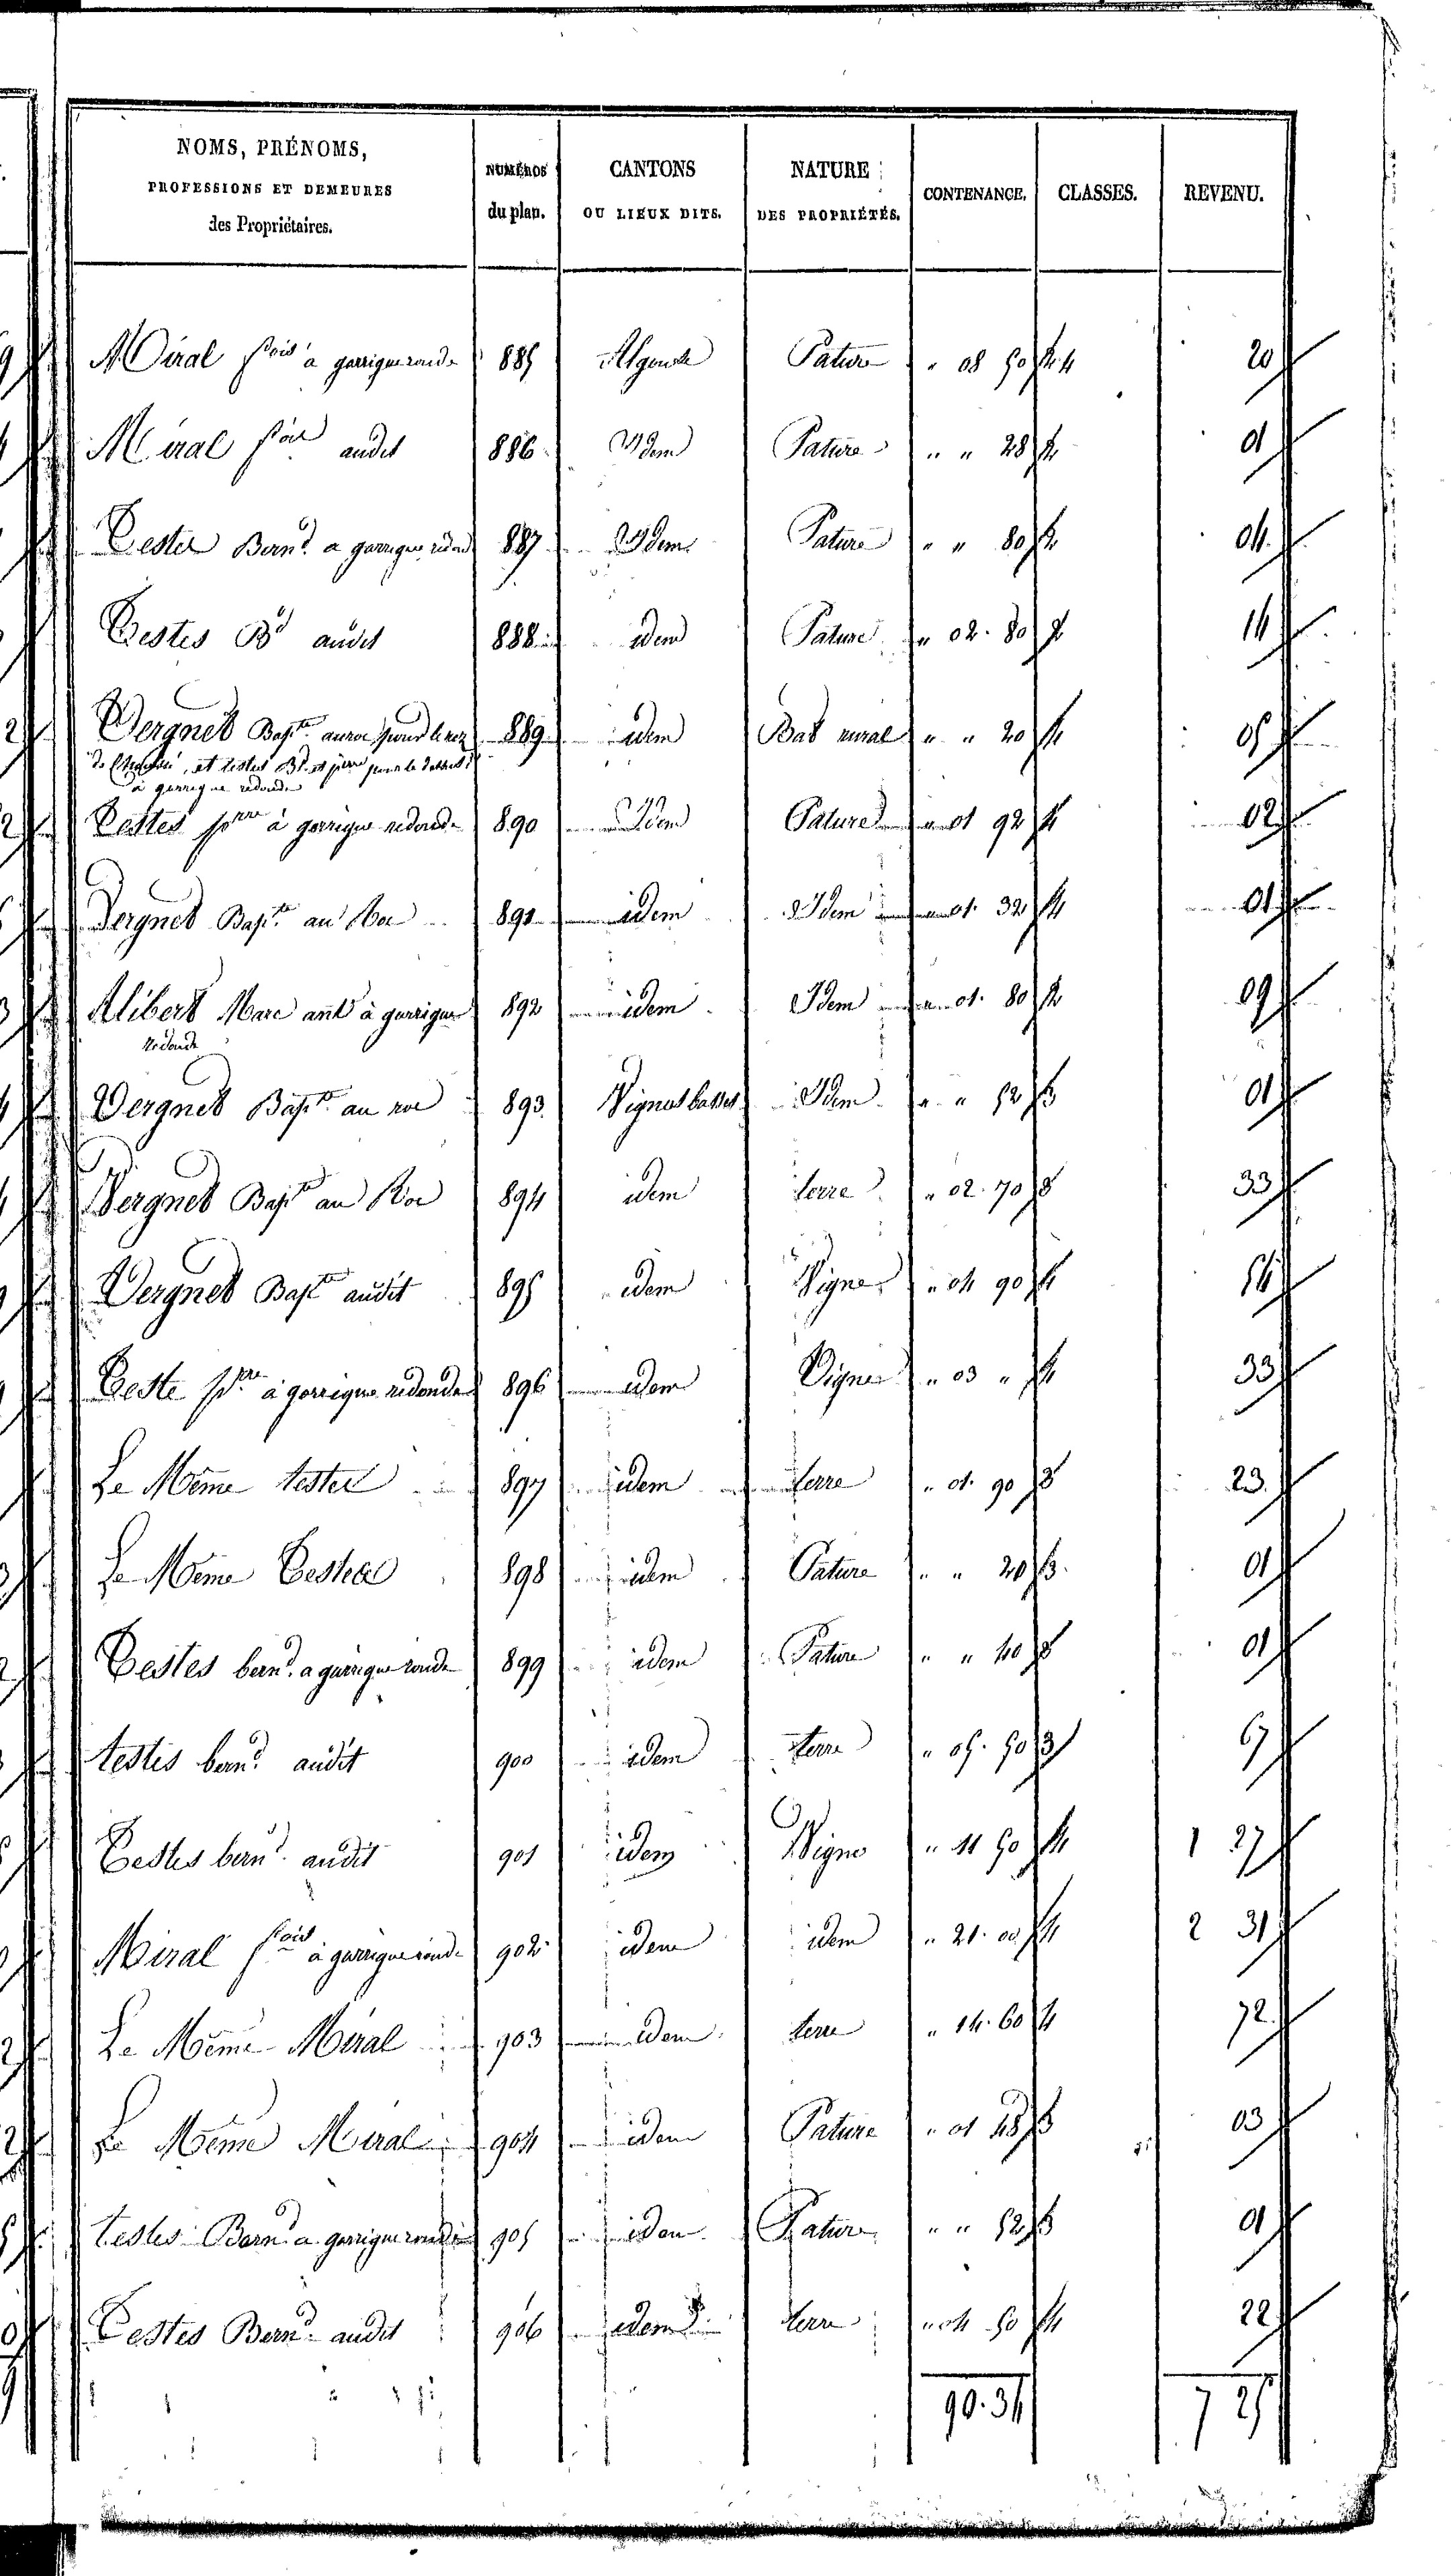 NOMS, PRÉNOMS,
PROFESSIONS ET DEMEURES
des Propriétaires.
NUMÉROS
du plan.
CANTONS
OU LIEUX DITS.
NATURE
DES PROPRIÉTÉS.
CONTENANCE.
CLASSES.
REVENU.
Miral fois à garrigue ronde 885 Pature " 08 50 4 20
Miral audit 886 Idem Pature " " 28 01
Testes Bernd a garrigue 887 Idem Pature " " 80 04
Testes Bd audit 888 idem Pature " 02. 80 14
Vergnes Bapte 889 idem Bat rural " " 20 05
à garrigue redonde
Testes prre à garrigue redonde 890 Idem Pature " 01 92 4 02
Vergnes Bapte au Roc 891 idem Idem " 01. 32 4 01
Alibert Marc ant à garrigue 892 idem Idem " 01. 80 09
redonde
Vergnes Bapte au roc 893 Vignes basses Idem " " 52 3 01
Vergnes Bapte au Roc 894 idem terre " 02. 70 3 33
Vergnes Bapte audit 895 idem Vigne " 04 90 4 54
Teste prre à garrigue redonde 896 idem Vigne " 03 " 4 33
Le Même testes 897 idem terre " 01. 90 3 23
Le Même Testes 898 idem Pature " " 20 3 01
Testes bernd. a garrigue ronde 899 idem Pature " " 40 3 01
testes bernd. audit 900 idem terre " 05. 50 3 67
Testes bernd. audit 901 idem Vigne " 11 50 4 1 27
Miral fois à garrigue ronde 902 idem idem " 21. 00 4 2 31
Le Même Miral 903 idem terre " 14. 60 4 72
Le Même Miral 904 idem Pature " 01 28 3 03
testes Bernd a garrigue ronde 905 idem Pature " " 52 3 01
Testes Bernd audit 906 idem terre " 04 50 4 22
90. 34 7 25